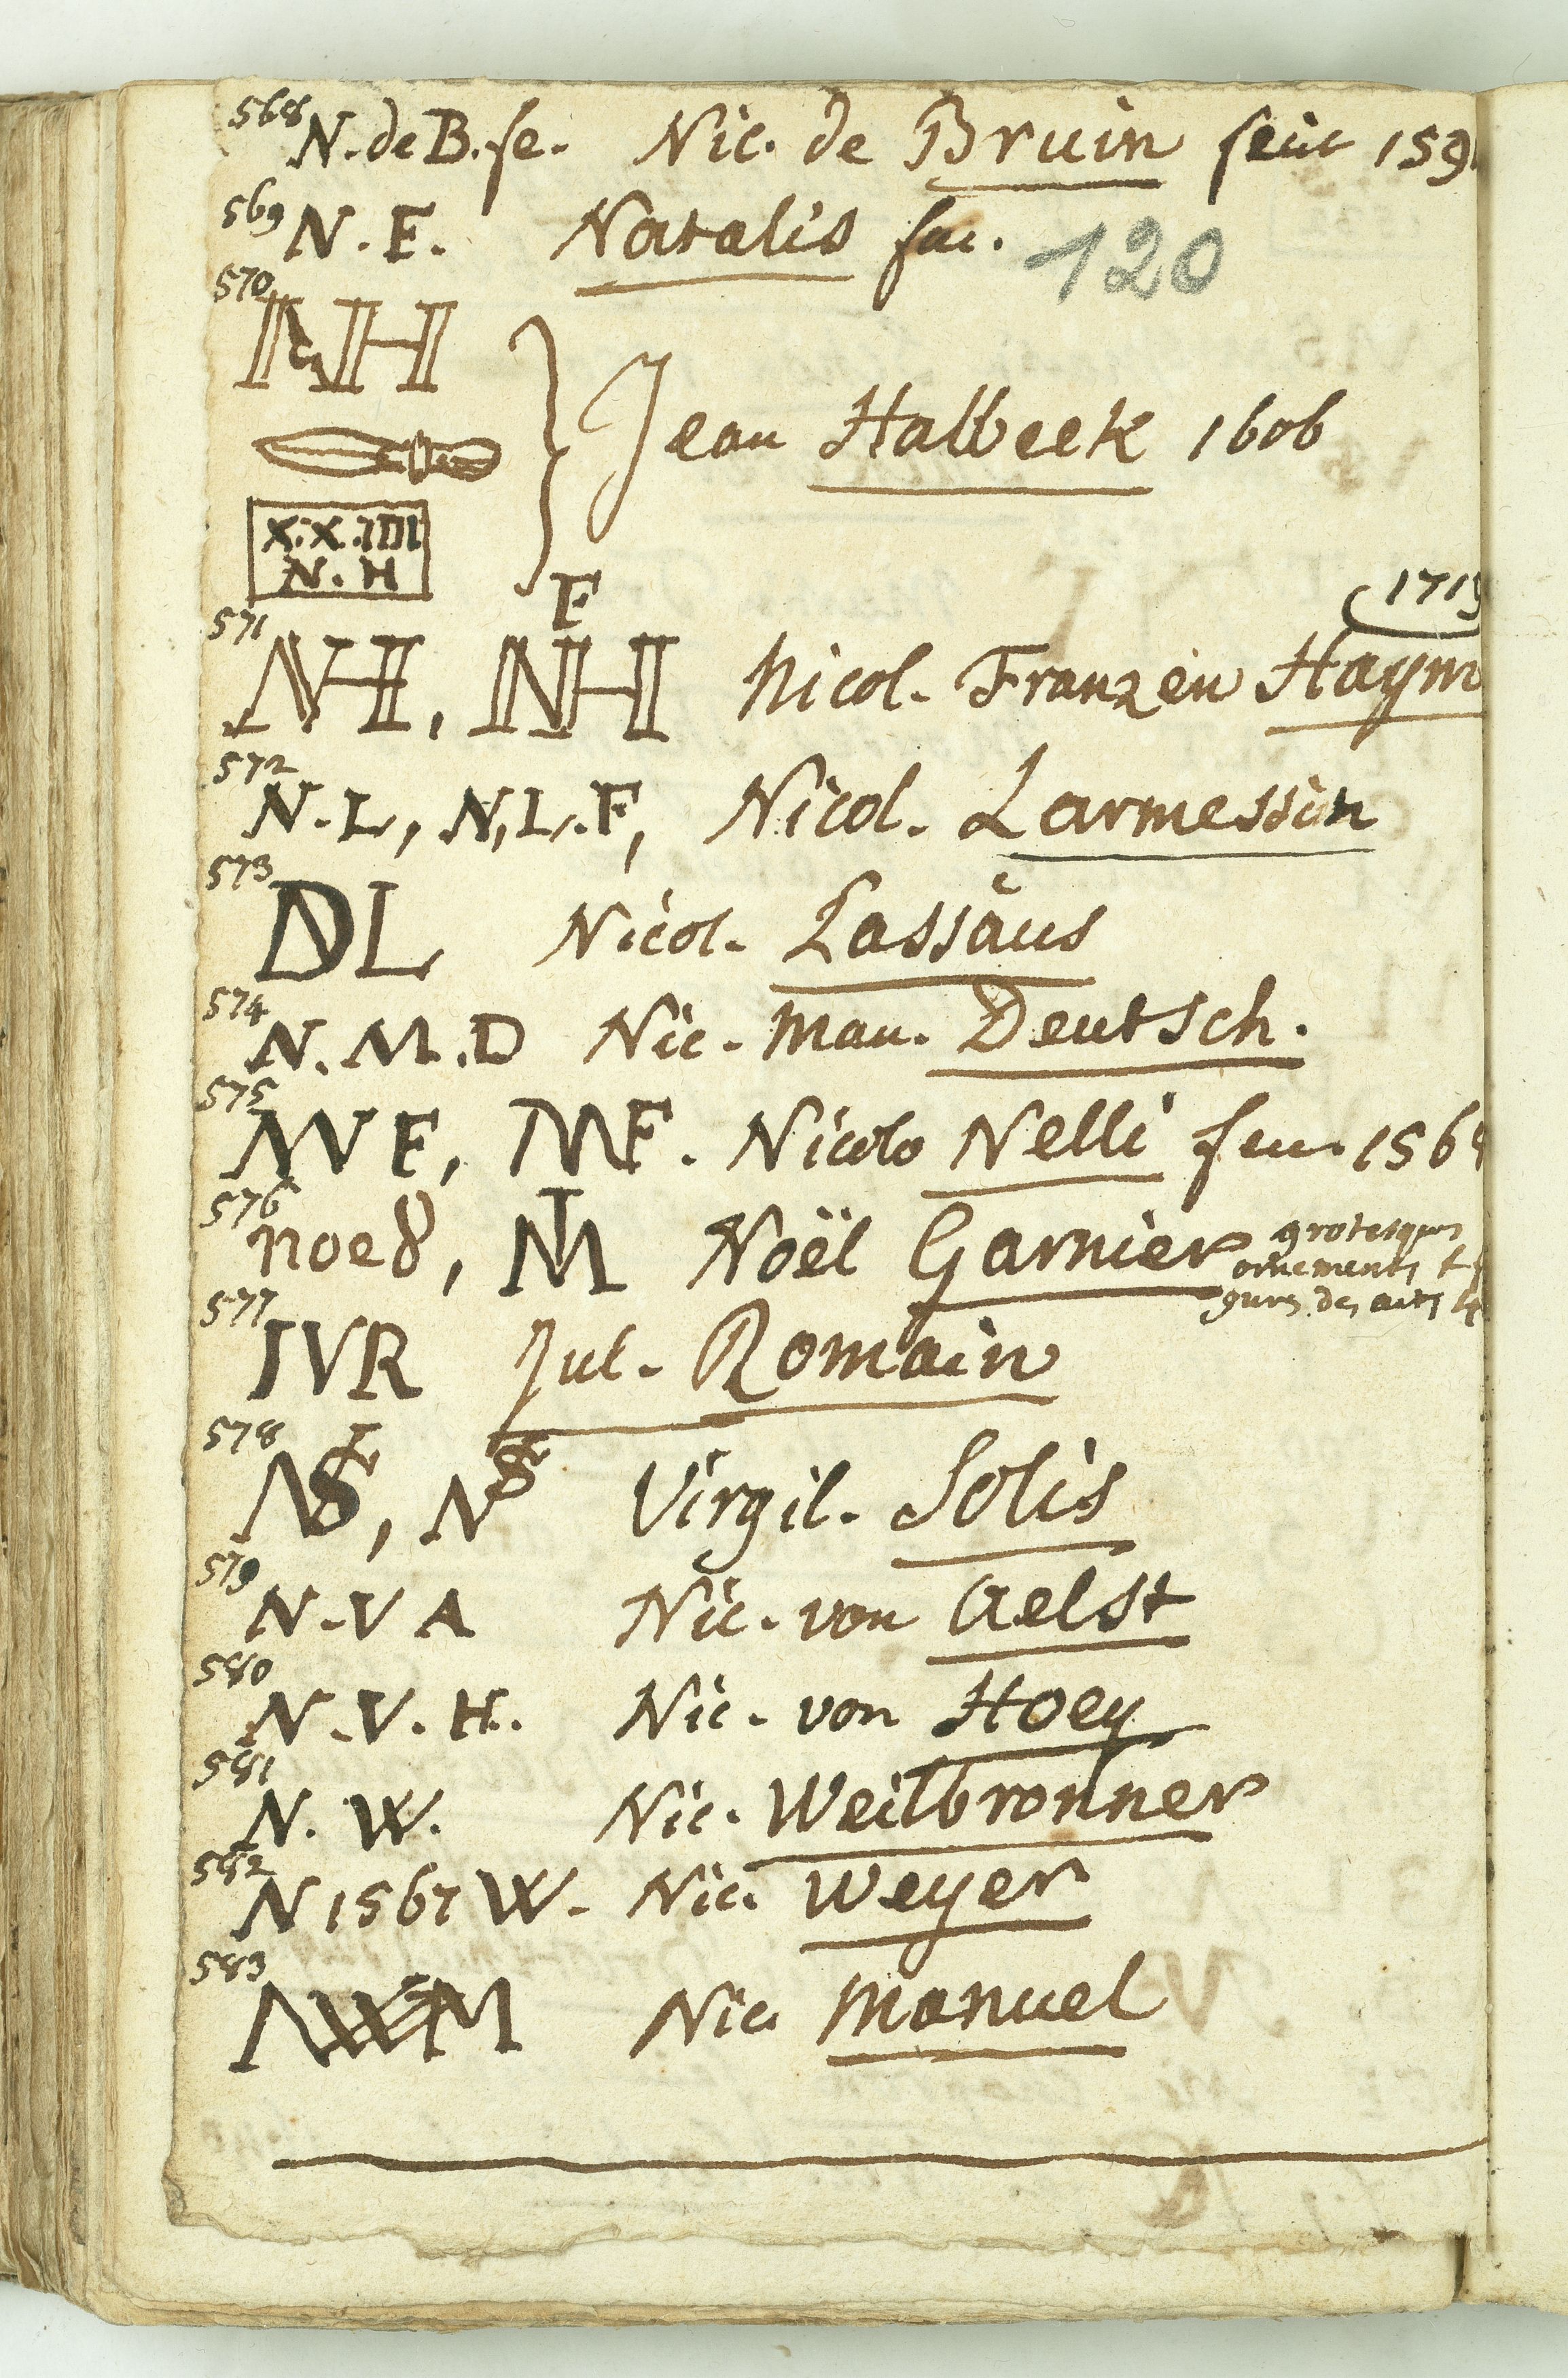 568 N. de B. fe. Nic. de Bruin fecit 159
569 N. E. Natalis fac.
120
570 NH
Jean Halbeek 1606
X.X.IIII
N.H
1715
571 NH, NHF Nicol. Franzen Haym
572 N.L, N.L.F, Nicol. Larmessin
573 NDL Nicol. Lassäus
574 N.M.D Nic. Man. Deutsch.
575 NVF, NNF. Nicolo Nelli fec. 156
576 noe8, NTM Noël Garnier grotesques
ornements
gures des arts
577 IVR Jul. Romain
578 NS, NS Virgil. Solis
579 N.VA Nic. von Aelst
580 N.V.H. Nic. von Hoey
581 N. W. Nic. Weilbronner
582 N 1567 W. Nic. Weyer
583 NWEM Nic. Manuel